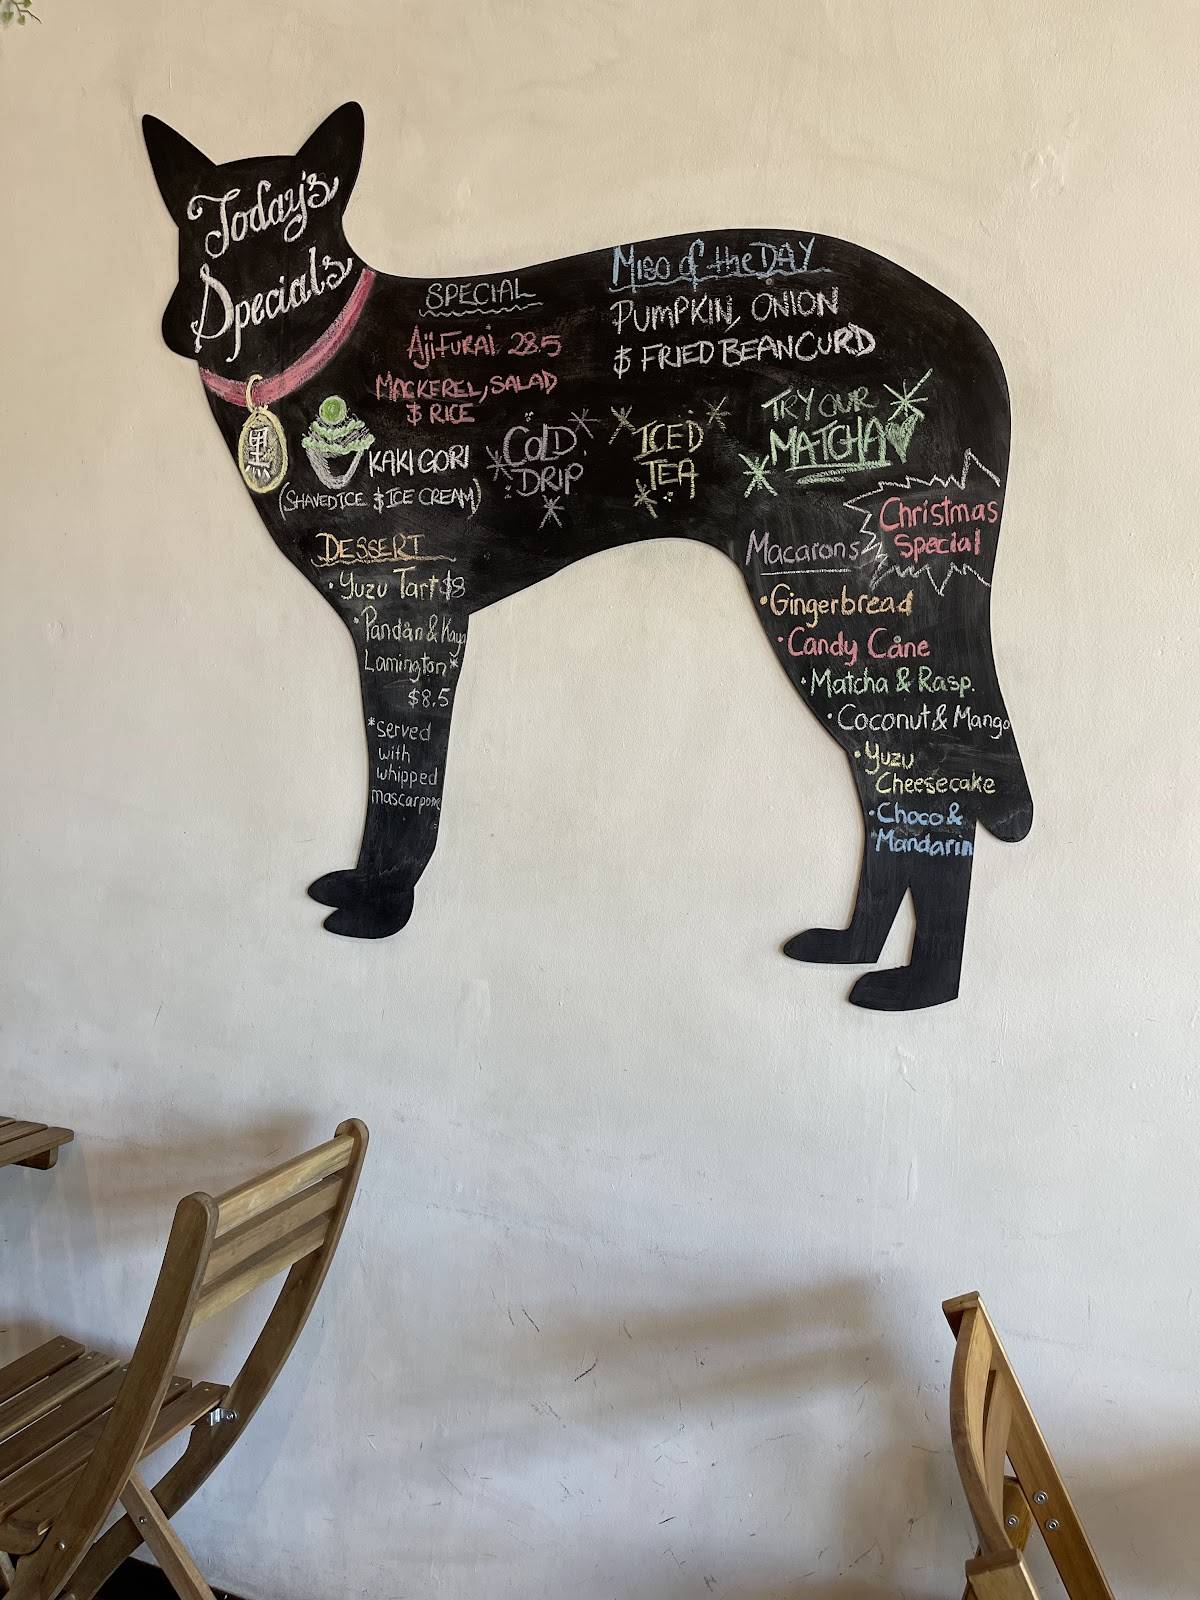 Today's
Specials
黒
SPECIAL
AJI FURAI 28.5
MACKEREL, SALAD
& RICE
MISO of the DAY
PUMPKIN, ONION
& FRIED BEANCURD
KAKIGORI
(SHAVED ICE & ICE CREAM)
COLD
DRIP
ICED
TEA
TRY OUR
MATCHA
DESSERT
• Yuzu Tart $8
• Pandan & Kaya
Lamington*
$8.5
*served
with
whipped
mascarpone
Christmas
Special
Macarons
• Gingerbread
• Candy Cane
• Matcha & Rasp.
• Coconut & Mango
• Yuzu
Cheesecake
• Choco &
Mandarin